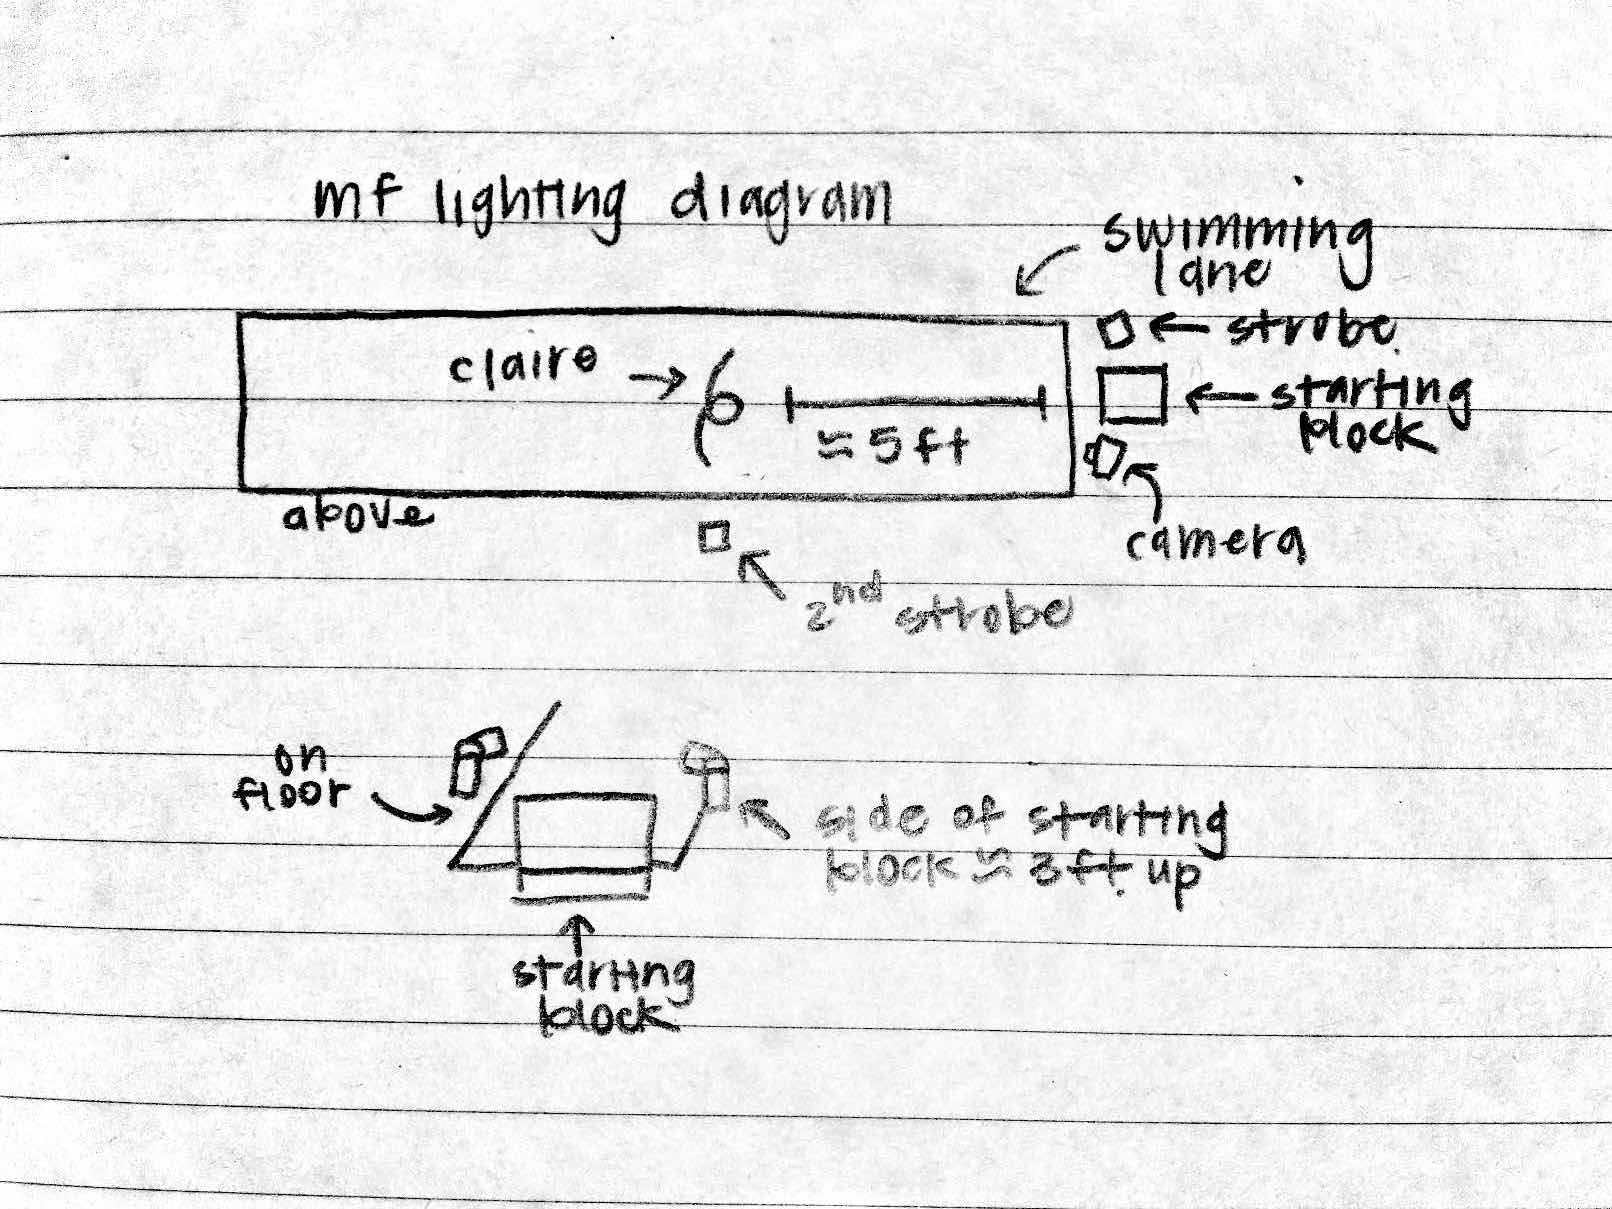 mf lighting diagram
swimming
lane
strobe
claire
starting
block
≈ 5 ft
above
camera
2nd strobe
on
floor
side of starting
block ≈ 3 ft up
starting
block